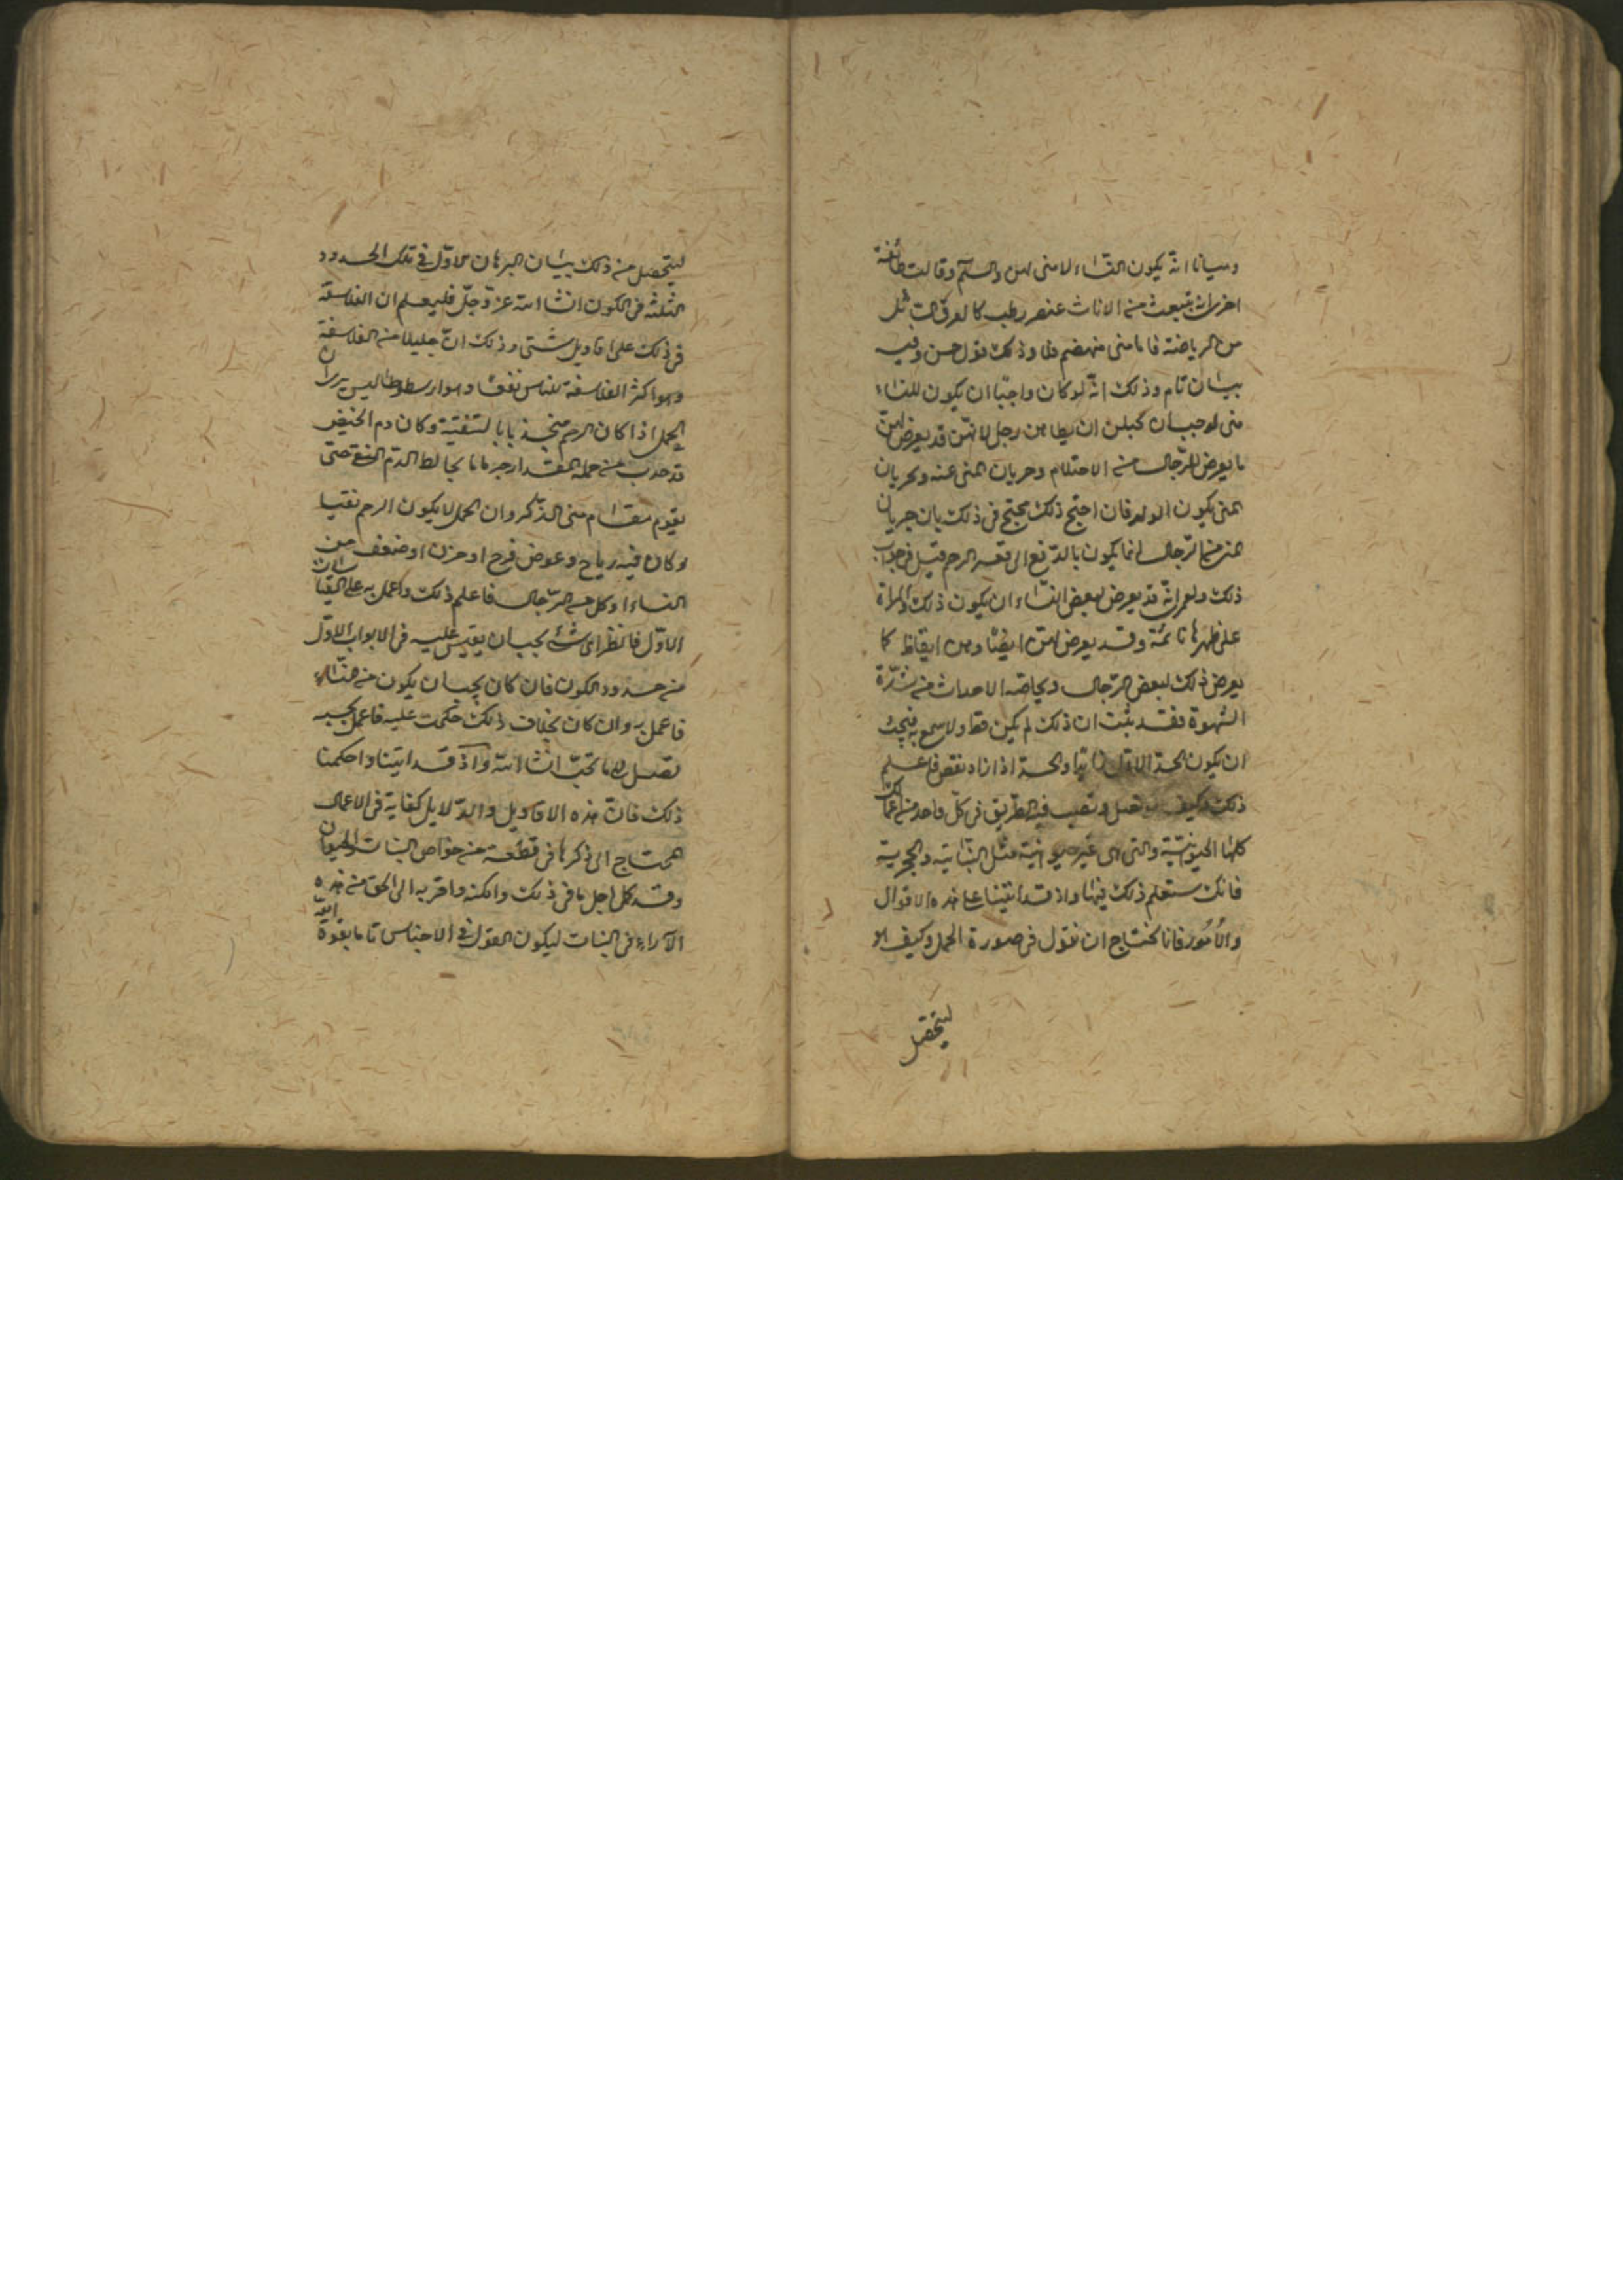 وبيانا انه يكون النساء لا منى لهن والسلم وقالت طائفة
اخرى انه ينبعث من الاناث عنصر رطب كالعرق
من الرياضة فاما منى منهضم فلا وذلك قول حسن وفيه
بيان تام وذلك انه لو كان واجبا ان يكون للنساء
منى لوجب ان يحبلن ان يطاهن رجل لانهن قد يعرض لهن
ما يعرض للرجال من الاحتلام وجريان المنى عنه وبجريان
المنى يكون الولد فان احتج ذلك محتج فى ذلك بان جريان
المنى من الرجال انما يكون بالدفع الى قعر الرحم قيل فى جواب
ذلك ولعمرى انه قد يعرض لبعض النساء ان يكون ذلك والمراة
على ظهرها نائمة وقد يعرض لهن ايضا وهن ايقاظ كما
يعرض ذلك لبعض الرجال وبخاصة الاحداث من شدة
الشهوة فقد يثبت ان ذلك لم يكن قط ولا سمع به فيجب
ان يكون الحد الاول ثابتا والحد اذا زاد نقص فاعلم
ذلك وكيف فيه الطريق فى كل واحد من اعمالك
كلها الحيوانية والتى هى غير حيوانية مثل النباتية والحجرية
فانك ستعلم ذلك فيها واذ قد اتينا على هذه الاقوال
والامور فانا نحتاج ان نقول فى صورة الحمل وكيف هو
ليتحصل
ليتحصل من ذلك بيان البرهان الاول فى تلك الحدود
الثلثة فى الكون انشا الله عز وجل فليعلم ان الفلاسفة
فى ذلك على اقاويل شتى وذلك ان جليلا من الفلاسفة
وهو اكثر الفلاسفة للناس نفعا وهو ارسطوطاليس يرى ان
الحمل اذا كان الرحم بالتنقية وكان دم الحيض
قد من جملة المقدار جزء ما يخالط الدم النقى حتى
يقوم مقام منى الذكر وان الحمل لا يكون الرحم نقيا
وكان فيه رياح وعوض فرح او حزن او ضعف من
النساء او كل من الرجال فاعلم ذلك واعمل به على القياسات
الاول فانظر اى شئ يجب ان يقيس عليه فى الابواب الاول
من حدود الكون فان كان يجب ان يكون من هنالك
فاعمل به وان كان بخلاف ذلك حكمت عليه فاعمل بحسبه
تصل الى ما تحب انشا الله واذ قد اتينا واحكمنا
ذلك فان هذه الاقاويل والدلايل كفاية فى الاعمال
المحتاج الى ذكرها فى قطعة من خواص النبات والحيوان
وقد كمل اجل ما فى ذلك وامكنه واقربه الى الحق من هذه
الآراء فى النبات ليكون القول فى الاجناس تاما بقوة الله